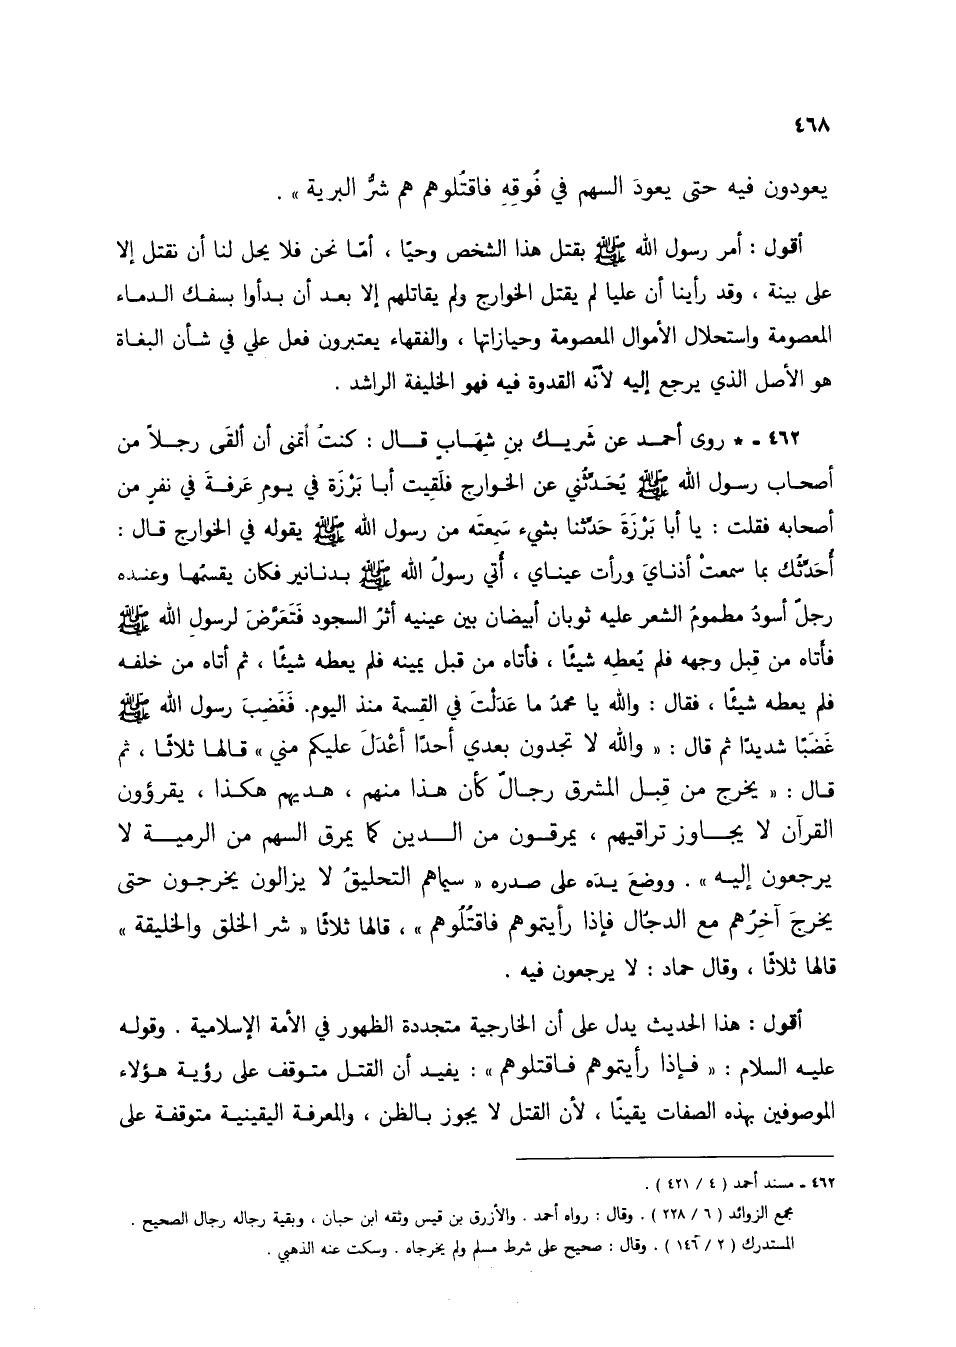 ٤٦٨
يعودون فيه حتى يعودَ السهم في فُوقِهِ فاقتُلوهم هم شرُّ البرية » .
أقول : أمر رسول الله ﷺ بقتل هذا الشخص وحيًا ، أمّا نحن فلا يحل لنا أن نقتل إلا
على بينة ، وقد رأينا أن عليا لم يقتل الخوارج ولم يقاتلهم إلا بعد أن بدأوا بسفك الدماء
المعصومة واستحلال الأموال المعصومة وحيازاتها ، والفقهاء يعتبرون فعل علي في شأن البغاة
هو الأصل الذي يرجع إليه لأنّه القدوة فيه فهو الخليفة الراشد .
٤٦٢ - * روى أحمد عن شَريك بنِ شِهَابٍ قال : كنتُ أتمنى أن ألقى رجلاً من
أصحاب رسول الله ﷺ يُحَدثُني عن الخوارج فلَقِيت أبا بَرْزَة في يوم عَرفةَ في نفرٍ من
أصحابه فقلت : يا أبا بَرْزَةَ حَدثْنا بشيء سَمِعتَه من رسول الله ﷺ يقوله في الخوارج قال :
أُحَدّثُك بما سمعتْ أذنايَ ورأت عيناي ، أُتي رسولُ الله ﷺ بدنانير فكان يقسمُها وعنده
رجلٌ أسودُ مطمومُ الشعر عليه ثوبان أبيضان بين عينيه أثرُ السجود فَتَعرَّضَ لرسولِ الله ﷺ
فأَتاه من قِبل وجهه فلم يُعطِه شيئًا ، فأتاه من قبل يمينه فلم يعطه شيئًا ، ثم أتاه من خلفه
فلم يعطه شيئًا ، فقال : والله يا محمدُ ما عَدَلْتَ في القِسمة منذ اليوم. فَغَضِبَ رسول الله ﷺ
غَضَبًا شديدًا ثم قال : « والله لا تجدون بعدي أحدًا أعْدَلَ عليكم مني » قالها ثلاثًا ، ثم
قال : « يخرج من قِبل المشرق رجالٌ كأن هذا منهم ، هديهم هكذا ، يقرؤون
القرآن لا يجاوز تراقيهم ، يمرقون من الدين كما يمرق السهم من الرمية لا
يرجعون إليه » . ووضعَ يدَه على صدره « سيماهم التحليقُ لا يزالون يخرجون حتى
يخرجَ آخِرُهم مع الدجّال فإذا رأيتموهم فاقتُلُوهم » ، قالها ثلاثًا « شر الخلق والخليقة »
قالها ثلاثًا ، وقال حماد : لا يرجعون فيه .
أقول : هذا الحديث يدل على أن الخارجية متجددة الظهور في الأمة الإسلامية . وقوله
عليه السلام : « فإذا رأيتموهم فاقتلوهم » : يفيد أن القتل متوقف على رؤية هؤلاء
الموصوفين بهذه الصفات يقينًا ، لأن القتل لا يجوز بالظن ، والمعرفة اليقينية متوقفة على
٤٦٢ - مسند أحمد ( ٤ / ٤٢١ ) .
مجمع الزوائد ( ٦ / ٢٢٨ ) . وقال : رواه أحمد . والأزرق بن قيس وثقه ابن حبان ، وبقية رجاله رجال الصحيح .
المستدرك ( ٢ / ١٤٦ ) . وقال : صحيح على شرط مسلم ولم يخرجاه . وسكت عنه الذهبي .